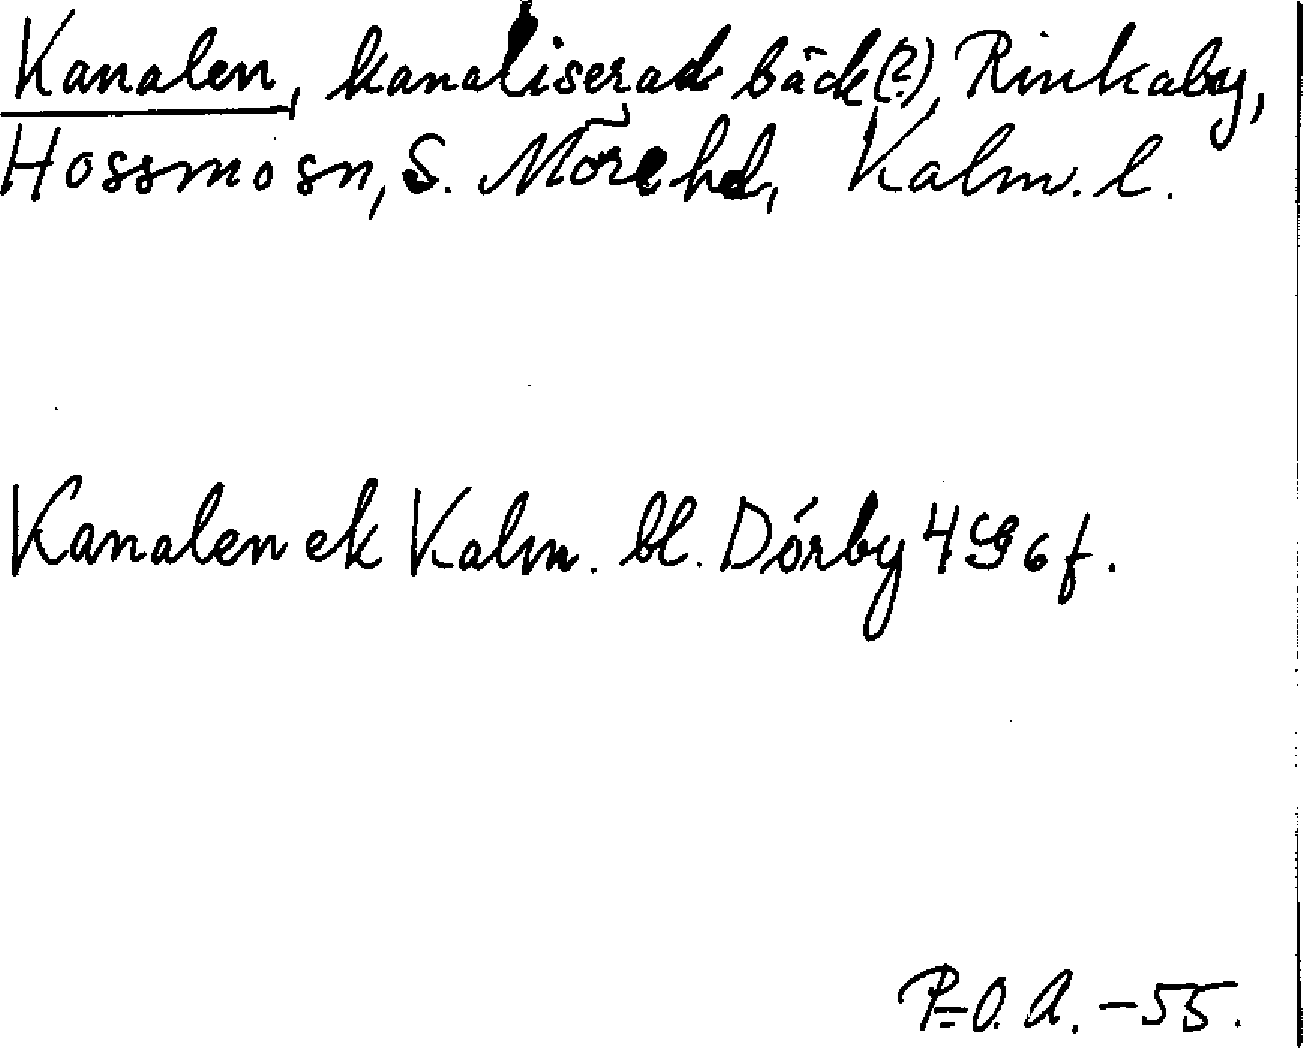 Kanalen, kanaliserad bäck(?), Rinkaby,
Hossmo sn, S. Möre hd, Kalm. l.
Kanalen ek Kalm. bl. Dörby 4G6f.
P-O. A. -55.